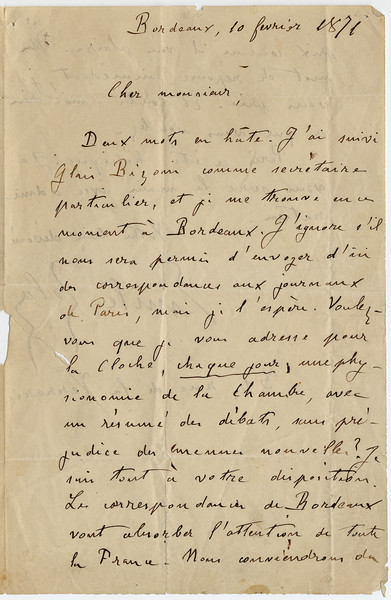 Bordeaux, 10 février 1871
Cher monsieur,
Deux mots en hâte. J'ai suivi
Glais Bizoin comme secrétaire
particulier, et je me trouve en ce
moment à Bordeaux. J'ignore s'il
nous sera permis d'envoyer d'ici
des correspondances aux journaux
de Paris, mais je l'espère. Voulez-
vous que je vous adresse pour
la Cloche, chaque jour, une phy-
sionomie de la Chambre, avec
un résumé des débats, sans pré-
judice des menues nouvelles? Je
suis tout à votre disposition.
Les correspondances de Bordeaux
vont absorber l'attention de toute
la France. Nous conviendrons du